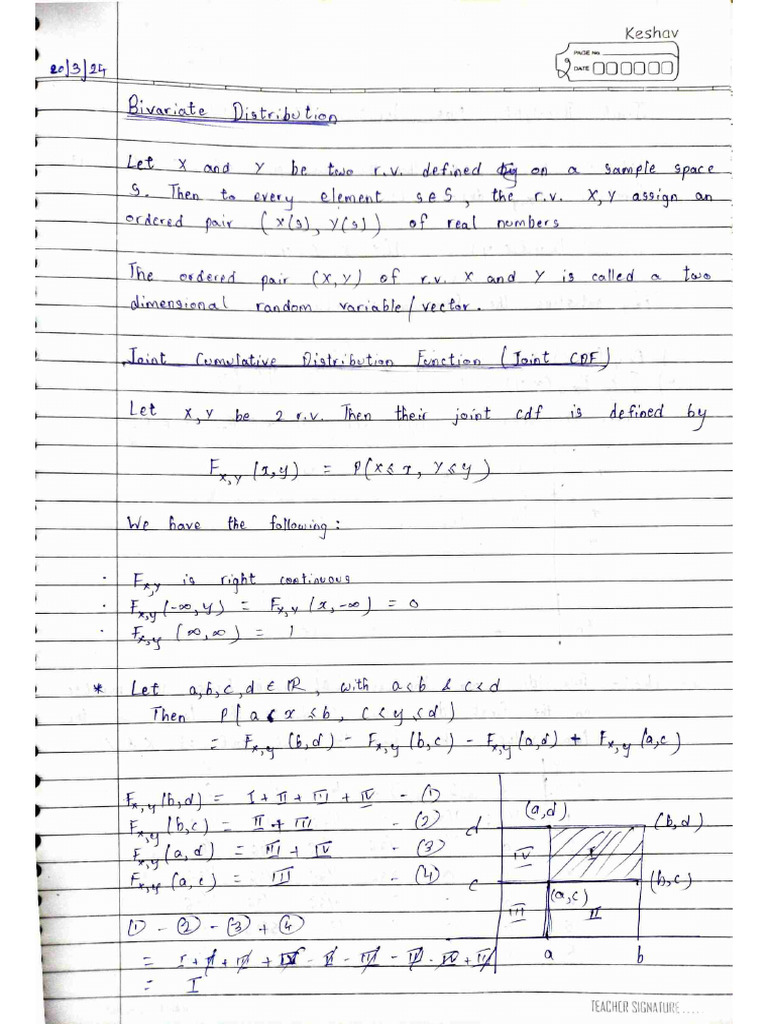 Keshav
PAGE No.
DATE
20/3/24
Bivariate Distribution
Let X and Y be two r.v. defined on a sample space
S. Then to every element s∈S, the r.v. X,Y assign an
ordered pair (X(s), Y(s)) of real numbers
The ordered pair (X,Y) of r.v. X and Y is called a two
dimensional random variable/vector.
Joint Cumulative Distribution Function (Joint CDF)
Let X,Y be 2 r.v. Then their joint cdf is defined by
F_{X,Y}(x,y) = P(X≤x, Y≤y)
We have the following:
· F_{X,Y} is right continuous
· F_{X,Y}(-∞,y) = F_{X,Y}(x,-∞) = 0
· F_{X,Y}(∞,∞) = 1
* Let a,b,c,d ∈ ℝ, with a<b & c<d
Then P(a<x≤b, c<y≤d)
= F_{X,Y}(b,d) - F_{X,Y}(b,c) - F_{X,Y}(a,d) + F_{X,Y}(a,c)
F_{X,Y}(b,d) = I + II + III + IV - (1)
F_{X,Y}(b,c) = II + III - (2)
F_{X,Y}(a,d) = III + IV - (3)
F_{X,Y}(a,c) = III - (4)
(a,d)
d
(b,d)
IV
I
c
(b,c)
(a,c)
III
II
a
b
① - ② - ③ + ④
= I + II + III + IV - II - III - III - IV + III
= I
TEACHER SIGNATURE.....